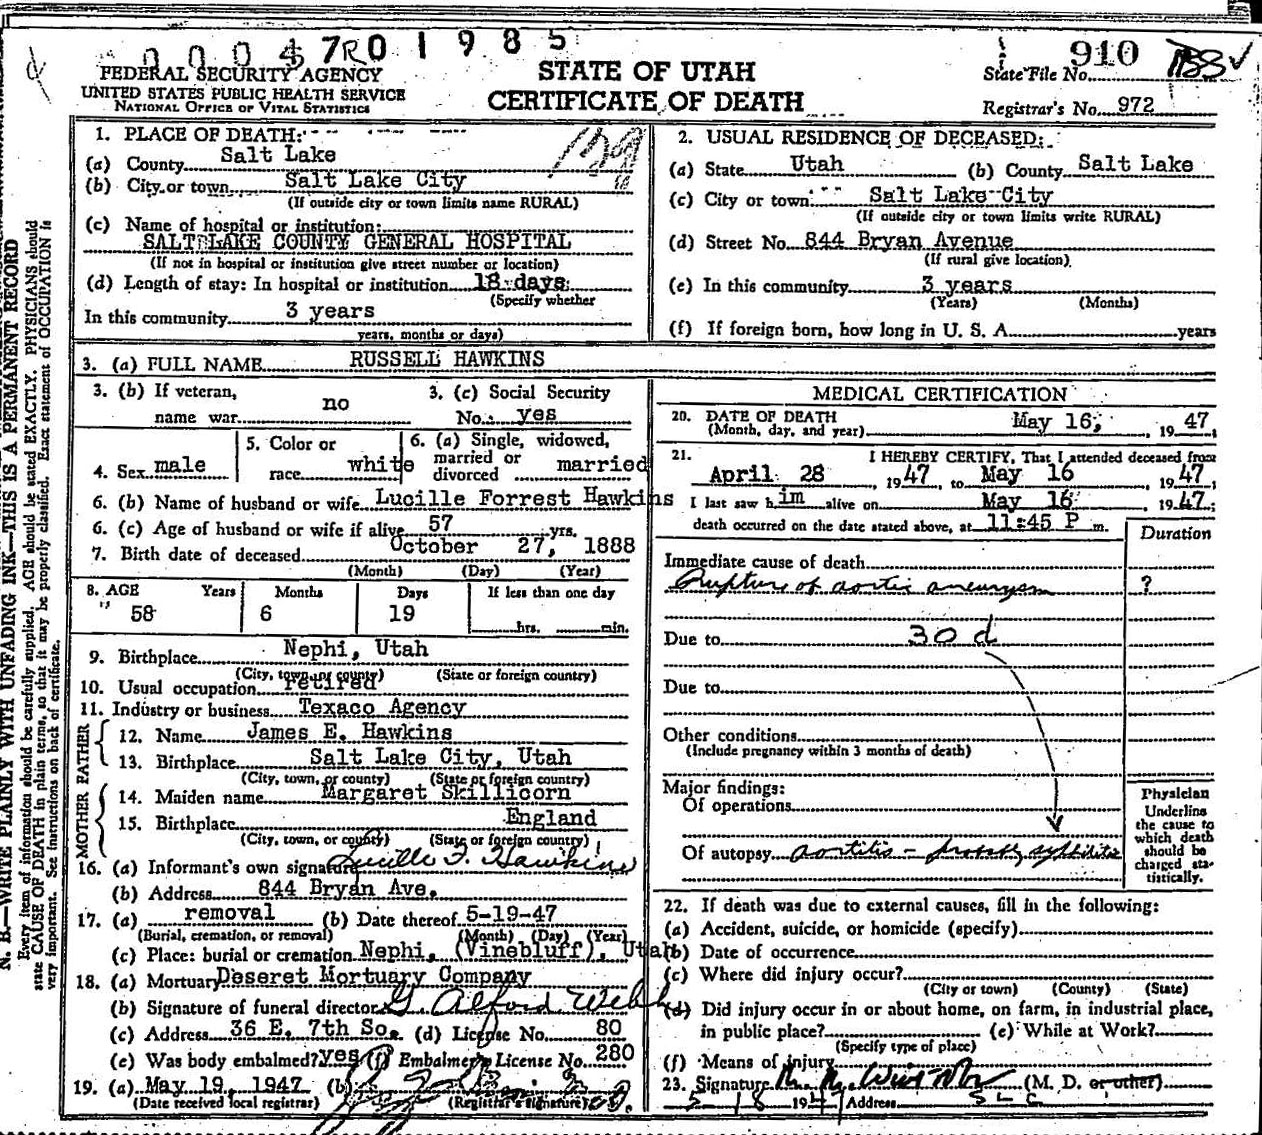 0 0 0 4 7 R 0 1 9 8 5
FEDERAL SECURITY AGENCY
UNITED STATES PUBLIC HEALTH SERVICE
NATIONAL OFFICE OF VITAL STATISTICS
STATE OF UTAH
CERTIFICATE OF DEATH
State File No. 910
Registrar's No. 972
N. B.—WRITE PLAINLY WITH UNFADING INK—THIS IS A PERMANENT RECORD
Every item of information should be carefully supplied. AGE should be stated EXACTLY. PHYSICIANS should
state CAUSE OF DEATH in plain terms, so that it may be properly classified. Exact statement of OCCUPATION is
very important. See instructions on back of certificate.
1. PLACE OF DEATH:
(a) County Salt Lake
(b) City or town Salt Lake City
(If outside city or town limits name RURAL)
(c) Name of hospital or institution:
SALT LAKE COUNTY GENERAL HOSPITAL
(If not in hospital or institution give street number or location)
(d) Length of stay: In hospital or institution 18 days
(Specify whether
In this community 3 years
years, months or days)
2. USUAL RESIDENCE OF DECEASED:
(a) State Utah (b) County Salt Lake
(c) City or town Salt Lake City
(If outside city or town limits write RURAL)
(d) Street No. 844 Bryan Avenue
(If rural give location)
(e) In this community 3 years
(Years) (Months)
(f) If foreign born, how long in U. S. A. years
3. (a) FULL NAME RUSSELL HAWKINS
3. (b) If veteran,
name war no
3. (c) Social Security
No. yes
4. Sex male
5. Color or
race white
6. (a) Single, widowed,
married or
divorced married
6. (b) Name of husband or wife Lucille Forrest Hawkins
6. (c) Age of husband or wife if alive 57 yrs.
7. Birth date of deceased October 27, 1888
(Month) (Day) (Year)
8. AGE Years Months Days If less than one day
58 6 19 hrs. min.
9. Birthplace Nephi, Utah
(City, town or county) (State or foreign country)
10. Usual occupation retired
11. Industry or business Texaco Agency
FATHER
12. Name James E. Hawkins
13. Birthplace Salt Lake City, Utah
(City, town, or county) (State or foreign country)
MOTHER
14. Maiden name Margaret Skillicorn
15. Birthplace England
(City, town, or county) (State or foreign country)
16. (a) Informant's own signature Lucille F. Hawkins
(b) Address 844 Bryan Ave.
17. (a) removal (b) Date thereof 5-19-47
(Burial, cremation, or removal) (Month) (Day) (Year)
(c) Place: burial or cremation Nephi, (Vinebluff), Utah
18. (a) Mortuary Deseret Mortuary Company
(b) Signature of funeral director G. Alford Webb
(c) Address 36 E. 7th So. (d) License No. 80
(e) Was body embalmed? yes (f) Embalmer's License No. 280
19. (a) May 19, 1947 (b)
(Date received local registrar) (Registrar's signature)
MEDICAL CERTIFICATION
20. DATE OF DEATH
(Month, day, and year) May 16, 1947
21. I HEREBY CERTIFY, That I attended deceased from
April 28, 1947, to May 16 1947,
I last saw him alive on May 16 1947;
death occurred on the date stated above, at 11:45 P m.
Duration
Immediate cause of death
Rupture of aortic aneurysm ?
Due to 30 d
Due to
Other conditions
(Include pregnancy within 3 months of death)
Major findings:
Of operations
Of autopsy aortitis – probably syphilitic
Physician
Underline
the cause to
which death
should be
charged sta-
tistically.
22. If death was due to external causes, fill in the following:
(a) Accident, suicide, or homicide (specify)
(b) Date of occurrence
(c) Where did injury occur?
(City or town) (County) (State)
(d) Did injury occur in or about home, on farm, in industrial place,
in public place? (e) While at Work?
(Specify type of place)
(f) Means of injury
23. Signature (M. D. or other)
5 - 18 1947 Address SLC